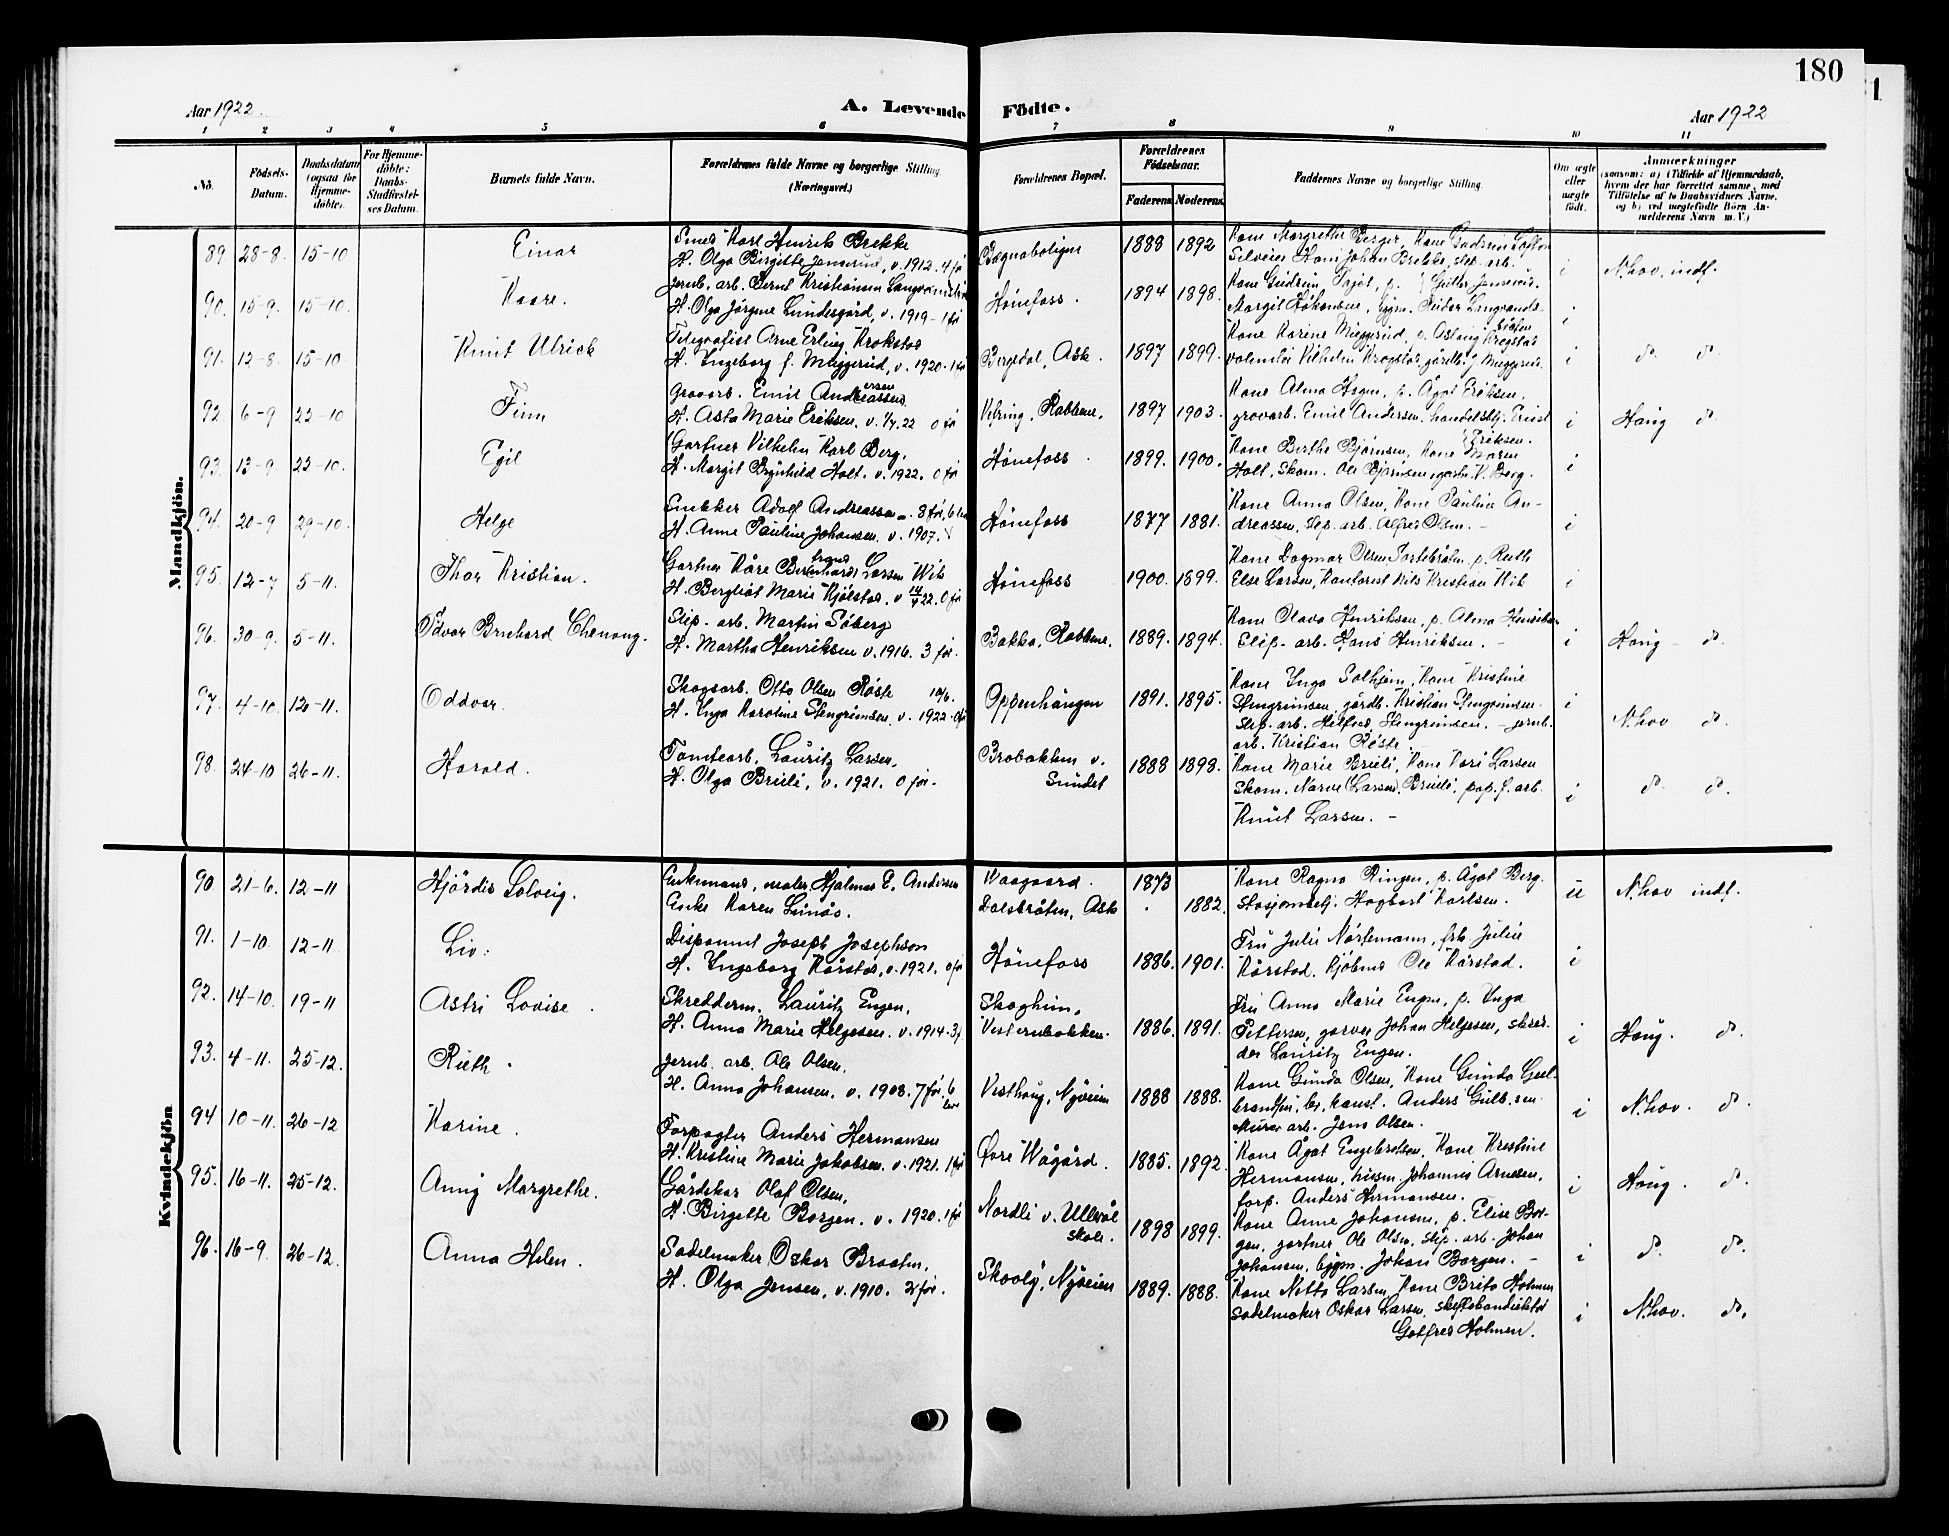 180
1
Aar 1922.
A. Levende Födte.
Aar 1922
1 2 3 4 5 6 7 8 9 10 11
No.
Födsels-Datum.
Daabsdatum (ogsaa for Hjemme-döbte).
For Hjemme-döbte: Daabs-Stadfæstel-ses Datum.
Barnets fulde Navn.
Forældrenes fulde Navne og borgerlige Stilling (Næringsvei.)
Forældrenes Bopæl.
Forældrenes Födselsaar.
Faderens Moderens
Faddernes Navne og borgerlige Stilling.
Om ægte eller uægte födt.
Anmærkninger
(saasom: a) i Tilfælde af Hjemmedaab,
hvem der har forrettet samme, med
Tilföielse af to Daabsvidners Navne,
og b) ved uægtefödte Börn An-
melderens Navn m. V.)
Mandkjön.
89 28-8. 15-10 Einar
Smed Karl Henrik Brekke
H. Olga Birgitte Jensrud, v. 1912. 4 før
Bægnaboligen 1888 1892
Kone Margrethe Berger, Kone Gudrun
Hans Johan Brekke, slip. arb. i N.hov. indf.
90. 15-9. 15-10. Kaare.
Jernb. arb. Bernt Kristiansen
H. Olga Jørgine Lundesgård, v. 1919 - 1 før
Hönefoss. 1894 1898.
Kone Gudrun
Margit Håkonsen, i
91. 12-8. 15-10 Knut Ulrick
Telegrafist Arne Erling Krokstad
H. Ingeborg f. Muggerud, v. 1920. 1 før
Bergdal, Ask. 1897 1899.
Kone Karine Muggerud, p. Aslaug Krogstad
Vilhelm Krogstad, gårdb. Muggerud. i do do
92 6-9 22-10 Finn
Gravarb. Emil Andreassen ersen
H. Asta Marie Eriksen. v. 1/4.22 0 før
Velring, Rabbene. 1897 1903.
Kone Alma Hagen, p. Ågot Eriksen,
gravarb. Emil Andersen, handelsbtj. Ernst
Eriksen. i Haug do
93. 13-9 22-10. Egil
Gartner Vilhelm Karl Berg,
H. Margit Brynhild Holt. v. 1922. 0 før
Hönefoss. 1899. 1900.
Kone Berthe Bjørnsen, Kone Maren
Holt, Skom. Ole Bjørnsen, gartn. V. Berg. i
94. 20-9 29-10. Helge
Snekker Adolf Andreassen. 8 før, 6 lev
H. Anne Pauline Johansen. v. 1907.
Hönefoss 1877 1881.
Kone Anna Olsen, Kone Pauline An-
dreassen, slip. arb. Alfred Olsen. - i
95. 12-7 5-11. Thor Kristian.
Gartner Kåre Larsen Wik
H. Bergliot Marie Kjölstad, v 14/4 22. 0 før
Hönefoss 1900. 1899.
Kone Dagmar Olsen p. Ruth
Else Larsen, Kantorist Nils Kristian Wik i
96. 30-9. 5-11. Odvar Brnhard Chenong.
Slip. arb. Martin Söberg
H. Martha Henriksen v. 1916. 3 før.
Bakka, Rabbene. 1889. 1894.
Kone Olava Henriksen, p. Alma Henriksen
Slip. arb. Hans Henriksen. - i Haug - do.
97. 4-10. 12-11. Oddvar.
Skogsarb. Otto Olsen Röste
H. Inga Karoline Stengrimsen, v. 1922. 0 før
Oppenhaugen 1891. 1895.
Kone Inga Solhjem, Kone Kristine
Stengrimsen, gårdb. Kristian Stengrimsen.
slip. arb. Stengrimsen. - jernb.
arb. Kristian Röste. i N.hov do.
98. 24-10 26-11. Harald.
Tomtearb. Lauritz Larsen,
H. Olga Brueli, v. 1921. 0 før -
Brobakken v.
Sundet 1888 1898.
Kone Marie Brueli, Kone Kari Larsen
Skom. Narve (Larsen) Brueli, pap. f. arb.
Knut Larsen. - i do. do.
Kvindekjön
90. 21-6. 12-11 Hjördis Solveig.
Enkemand, maler Hjalmar E. Andersen
Enke Karen
Waagaard. 1873
Dalsbråten, Ask. 1882.
Kone Ragna Ringen, p. Ågot Berg.
Hagbart Karlsen. u N.hov indf.
91. 1-10. 12-11 Liv.
Disponent Joseph Josephson
H. Ingeborg Kårstad, v. 1921. 0 før
Hönefoss 1886. 1901.
Fru Julie Nortemann, frk. Julie
Kårstad, Kjöbmd Ole Kårstad. i
92. 14-10. 19-11 Astri Lovise.
Skredderm. Lauritz Engen,
H. Anna Marie Helgesen. v. 1914. 3 f.
Skogheim,
Vesternbakken. 1886. 1891.
Fru Anna Marie Engen, p. Inga
Pettersen, garver Johan Helgesen, skred-
der Lauritz Engen. i Haug. do.
93. 4-11. 25-12. Ruth.
Jernb. arb. Ole Olsen.
H. Anna Johansen, v. 1908. 7 før. 6 lev
Vesthaug, Nyveien 1888 1888.
Kone Gunda Olsen, Kone Gunda Gul-
brandsen, Anders Gulb.sen.
Murer arb. Jens Olsen. i N.hov. do.
94 10-11. 26-12 Karine.
Forpagter Anders Hermansen
H. Kristine Marie Jakobsen. v. 1921. 1 før
Övre Vågård. 1885. 1892.
Kone Ågot Engebretsen, Kone Kristine
Hermansen, husm. Johannes Arnesen,
forp. Anders Hermansen. i Haug. do.
95. 16-11. 25-12. Anny Margrethe.
Gårdskar Olaf Olsen,
H. Birgitte Borgen. v. 1920. 1 før
Nordli v. Ullevål
skole. 1898 1899.
Kone Anne Johansen, p. Elise Bor-
gen, gartner Ole Olsen, slip. arb. Johan
Johansen, bygm. Johan Borgen. - i do. do.
96. 16-9. 26-12. Anna Helen.
Sadelmaker Oskar Braaten,
H. Olga Jensen, v. 1910. 2 før.
Skovly, Nyveien 1889. 1888.
Kone Netta Larsen, Kone Brita Holmen
Sadelmaker Oskar Larsen,
Gotfred Holmen. i N.hov. do.